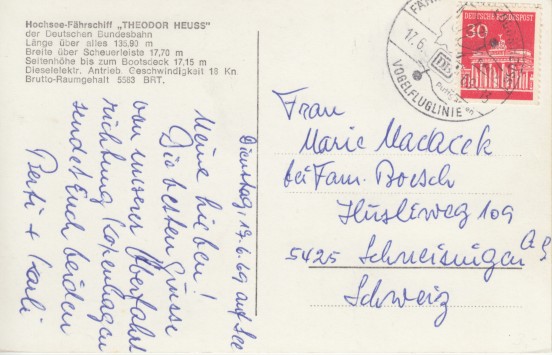 Hochsee-Fährschiff „THEODOR HEUSS"
der Deutschen Bundesbahn
Länge über alles 135,90 m
Breite über Scheuerleiste 17,70 m
Seitenhöhe bis zum Bootsdeck 17,15 m
Dieselelektr. Antrieb. Geschwindigkeit 18 Kn.
Brutto-Raumgehalt 5583 BRT.
Dienstag, 17.6.69 auf See
Meine Lieben!
Die besten Grüsse
von unserer Überfahrt
richtung Kopenhagen
sendet Euch beiden
Berti + Karli
DEUTSCHE BUNDESPOST
30
17.6.
DB
VOGELFLUGLINIE
Frau
Marie Macacek
bei Fam. Boesch
Hüslerweg 109
5425 Schneisingen AG
Schweiz